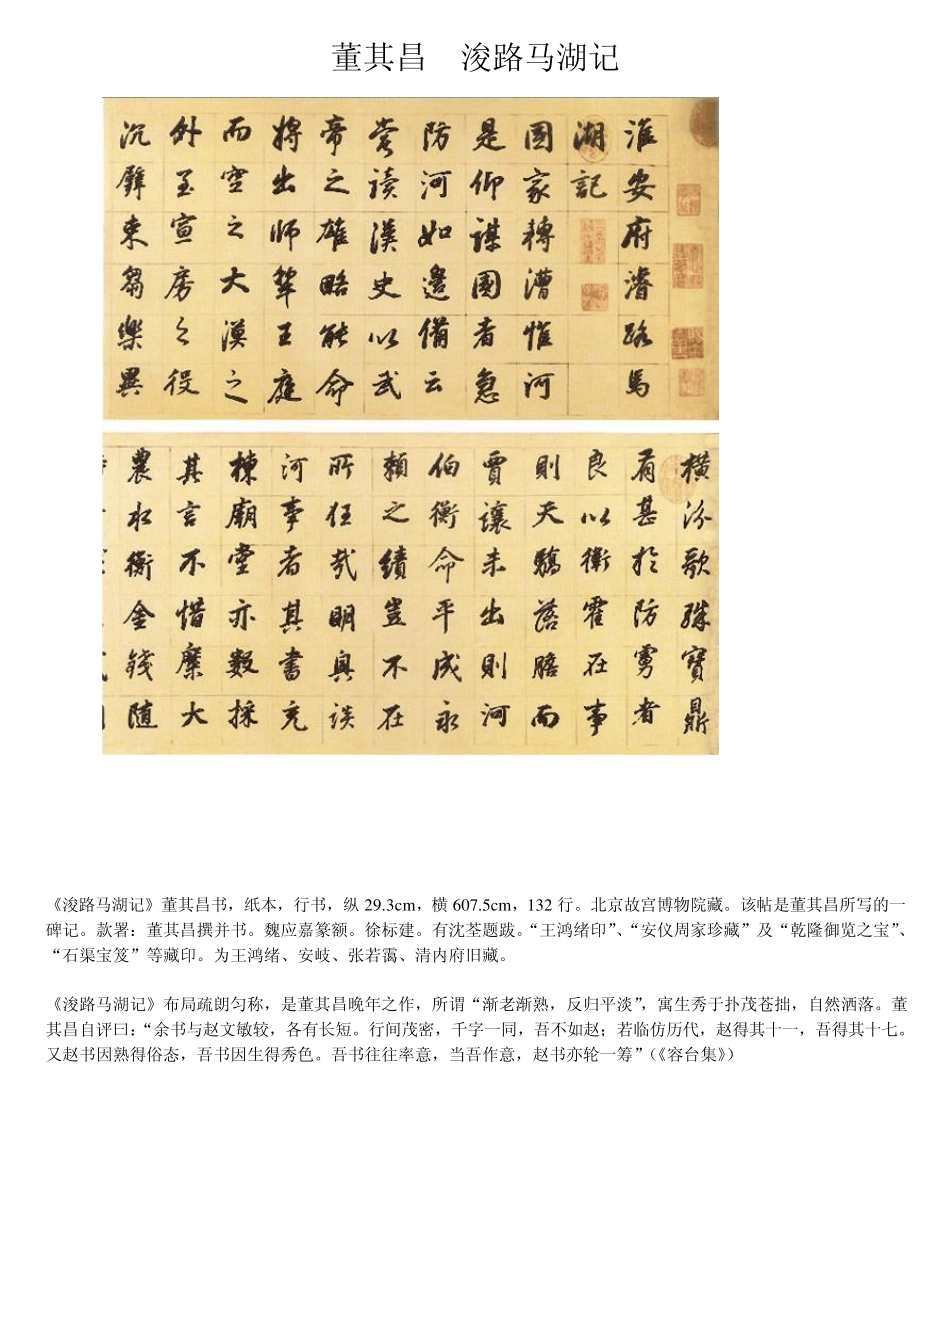 董其昌　浚路马湖记
淮安府濬路馬
湖記
國家轉漕惟河
是仰謀國者急
防河如邊備云
嘗讀漢史以武
帝之雄略能命
將出師犂王庭
而空之大漠之
外至宣房之役
沉璧束芻樂異
橫汾歌殊寶鼎
有甚於防虜者
良以衛霍在事
則天驕落膽而
賈讓未出則河
伯衡命平成永
賴之績豈不在
所任哉明興談
河事者其書充
棟廟堂亦數採
其言不惜糜大
農水衡金錢随
《浚路马湖记》董其昌书，纸本，行书，纵 29.3cm，横 607.5cm，132 行。北京故宫博物院藏。该帖是董其昌所写的一
碑记。款署：董其昌撰并书。魏应嘉篆额。徐标建。有沈荃题跋。“王鸿绪印”、“安仪周家珍藏”及“乾隆御览之宝”、
“石渠宝笈”等藏印。为王鸿绪、安岐、张若霭、清内府旧藏。
《浚路马湖记》布局疏朗匀称，是董其昌晚年之作，所谓“渐老渐熟，反归平淡”，寓生秀于扑茂苍拙，自然洒落。董
其昌自评曰：“余书与赵文敏较，各有长短。行间茂密，千字一同，吾不如赵；若临仿历代，赵得其十一，吾得其十七。
又赵书因熟得俗态，吾书因生得秀色。吾书往往率意，当吾作意，赵书亦轮一筹”（《容台集》）